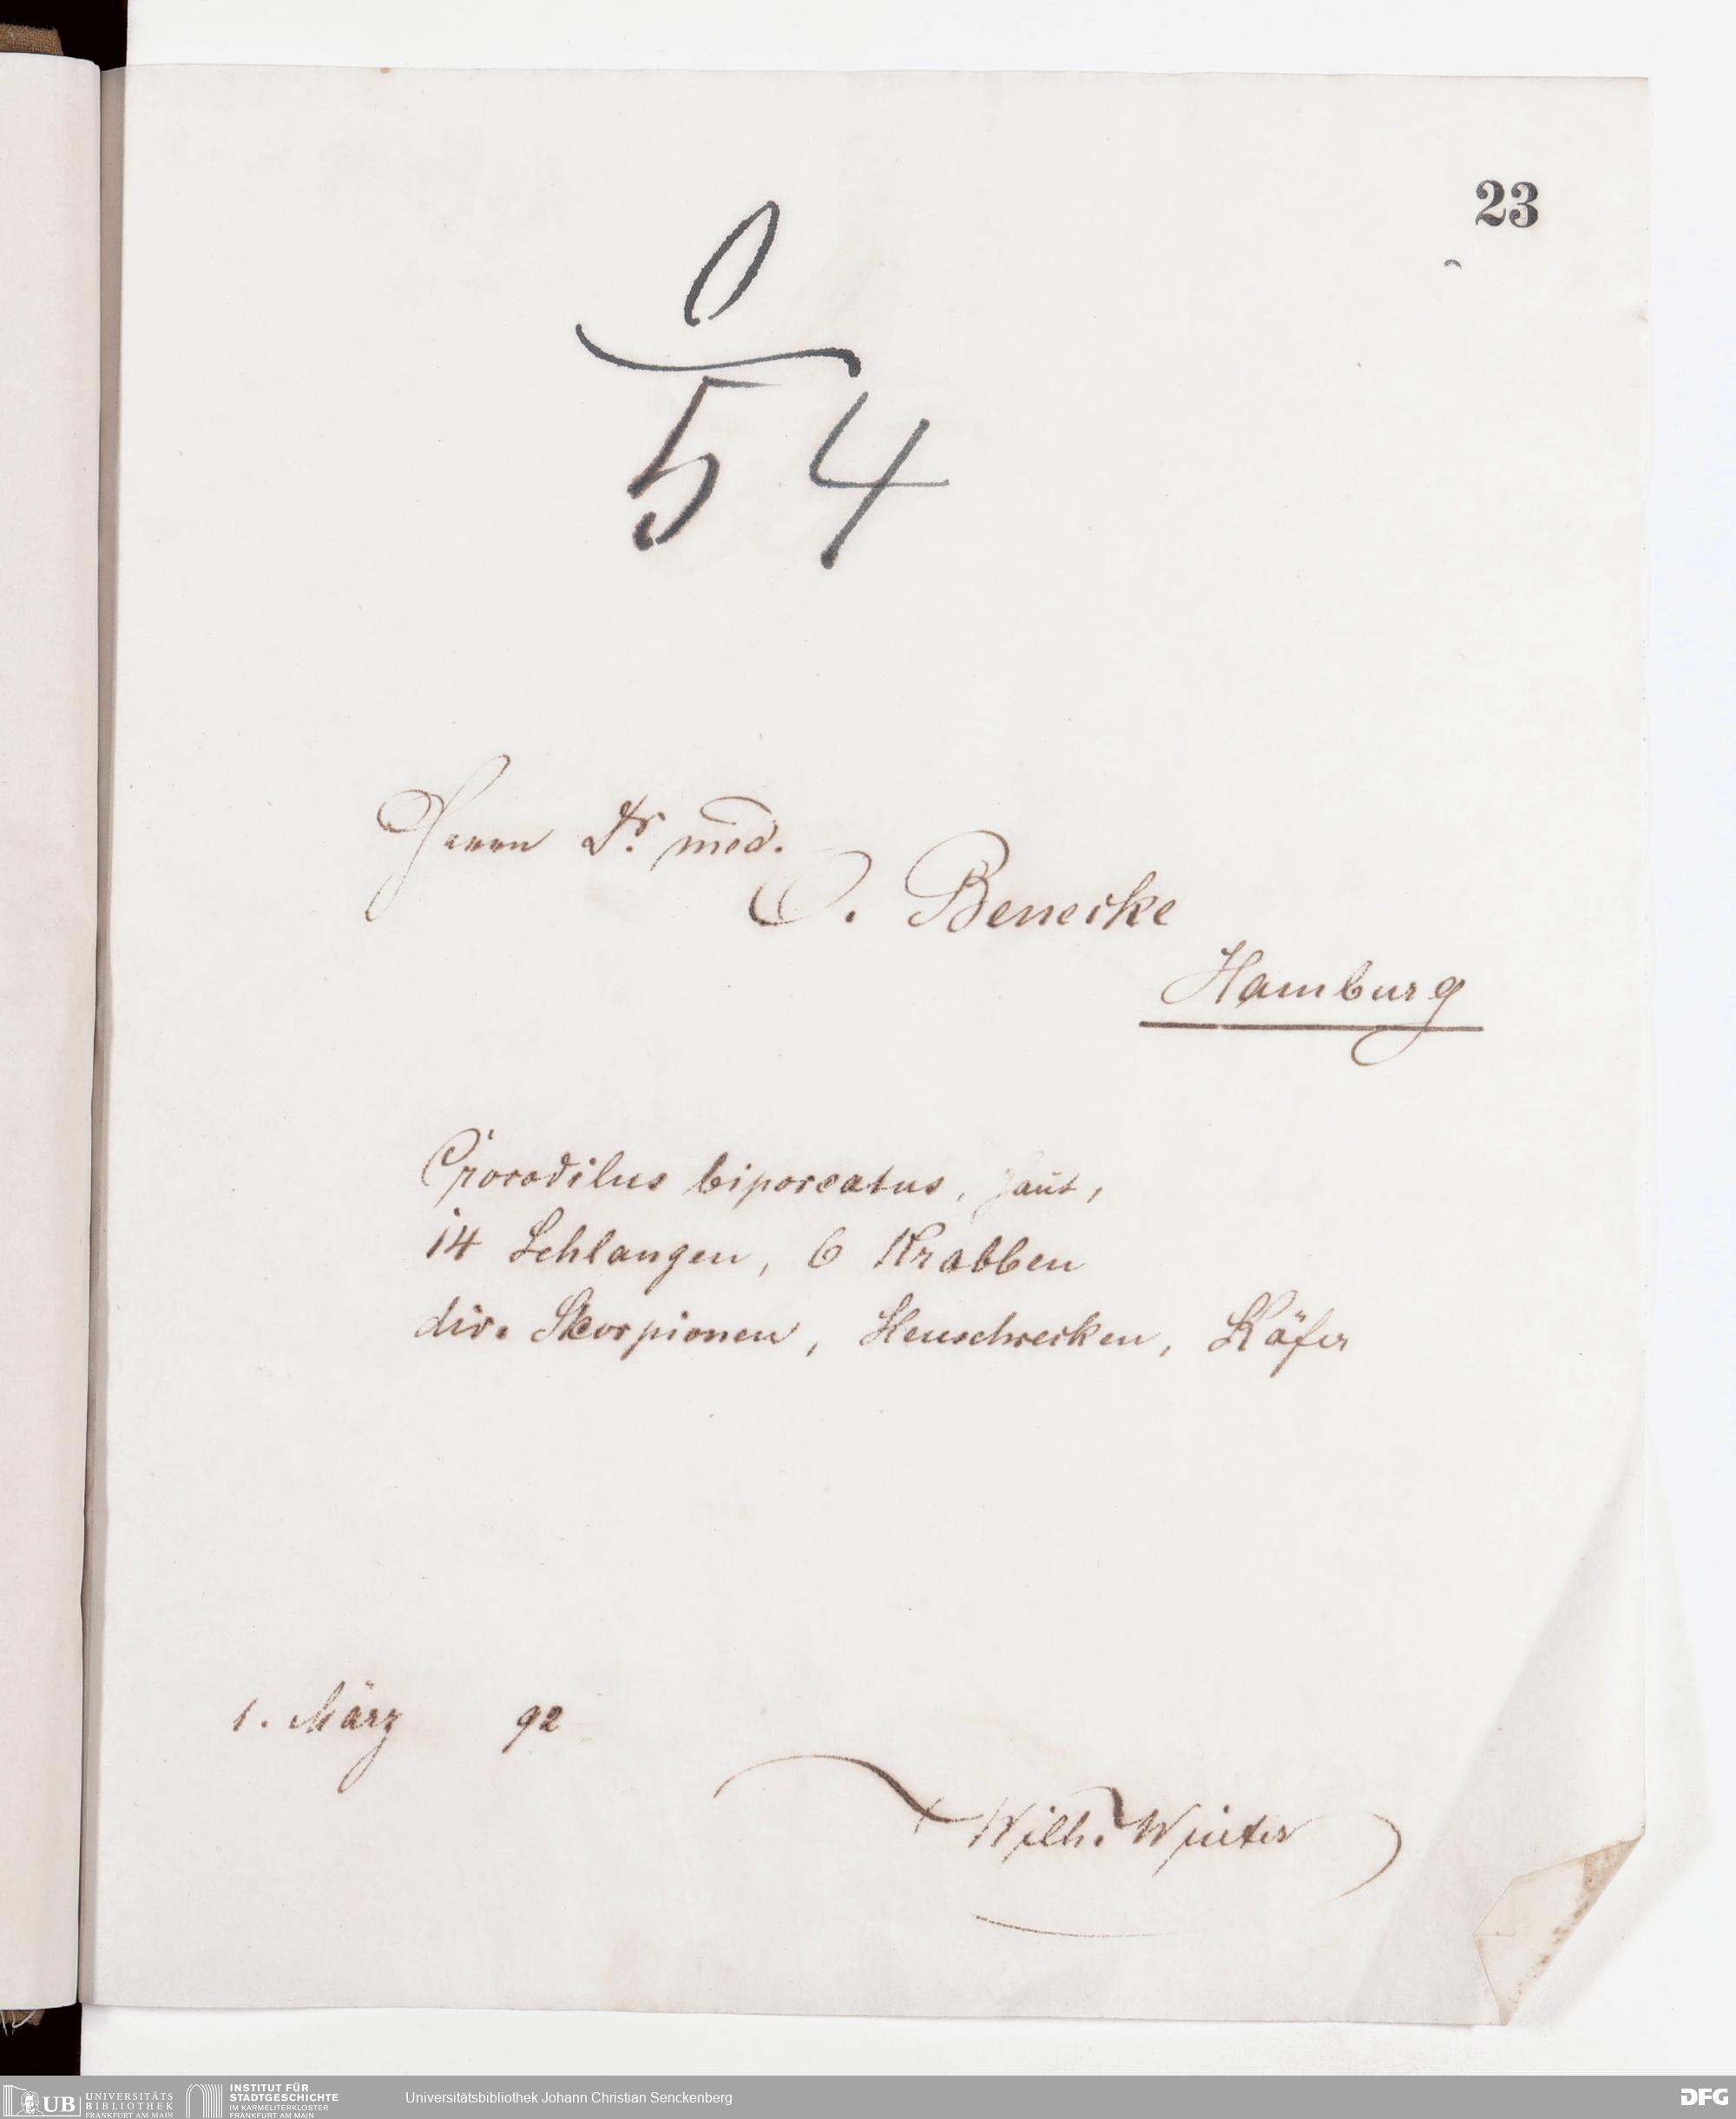 23
0
54
Herrn Dr. med.
O. Benecke
Hamburg
Crocodilus biporcatus, Haut,
14 Schlangen, 6 Krabben
div. Skorpionen, Heuschrecken, Käfer
1. März 92
Wilh. Winter
UB UNIVERSITÄTS
BIBLIOTHEK
FRANKFURT AM MAIN
INSTITUT FÜR
STADTGESCHICHTE
IM KARMELITERKLOSTER
FRANKFURT AM MAIN
Universitätsbibliothek Johann Christian Senckenberg
DFG